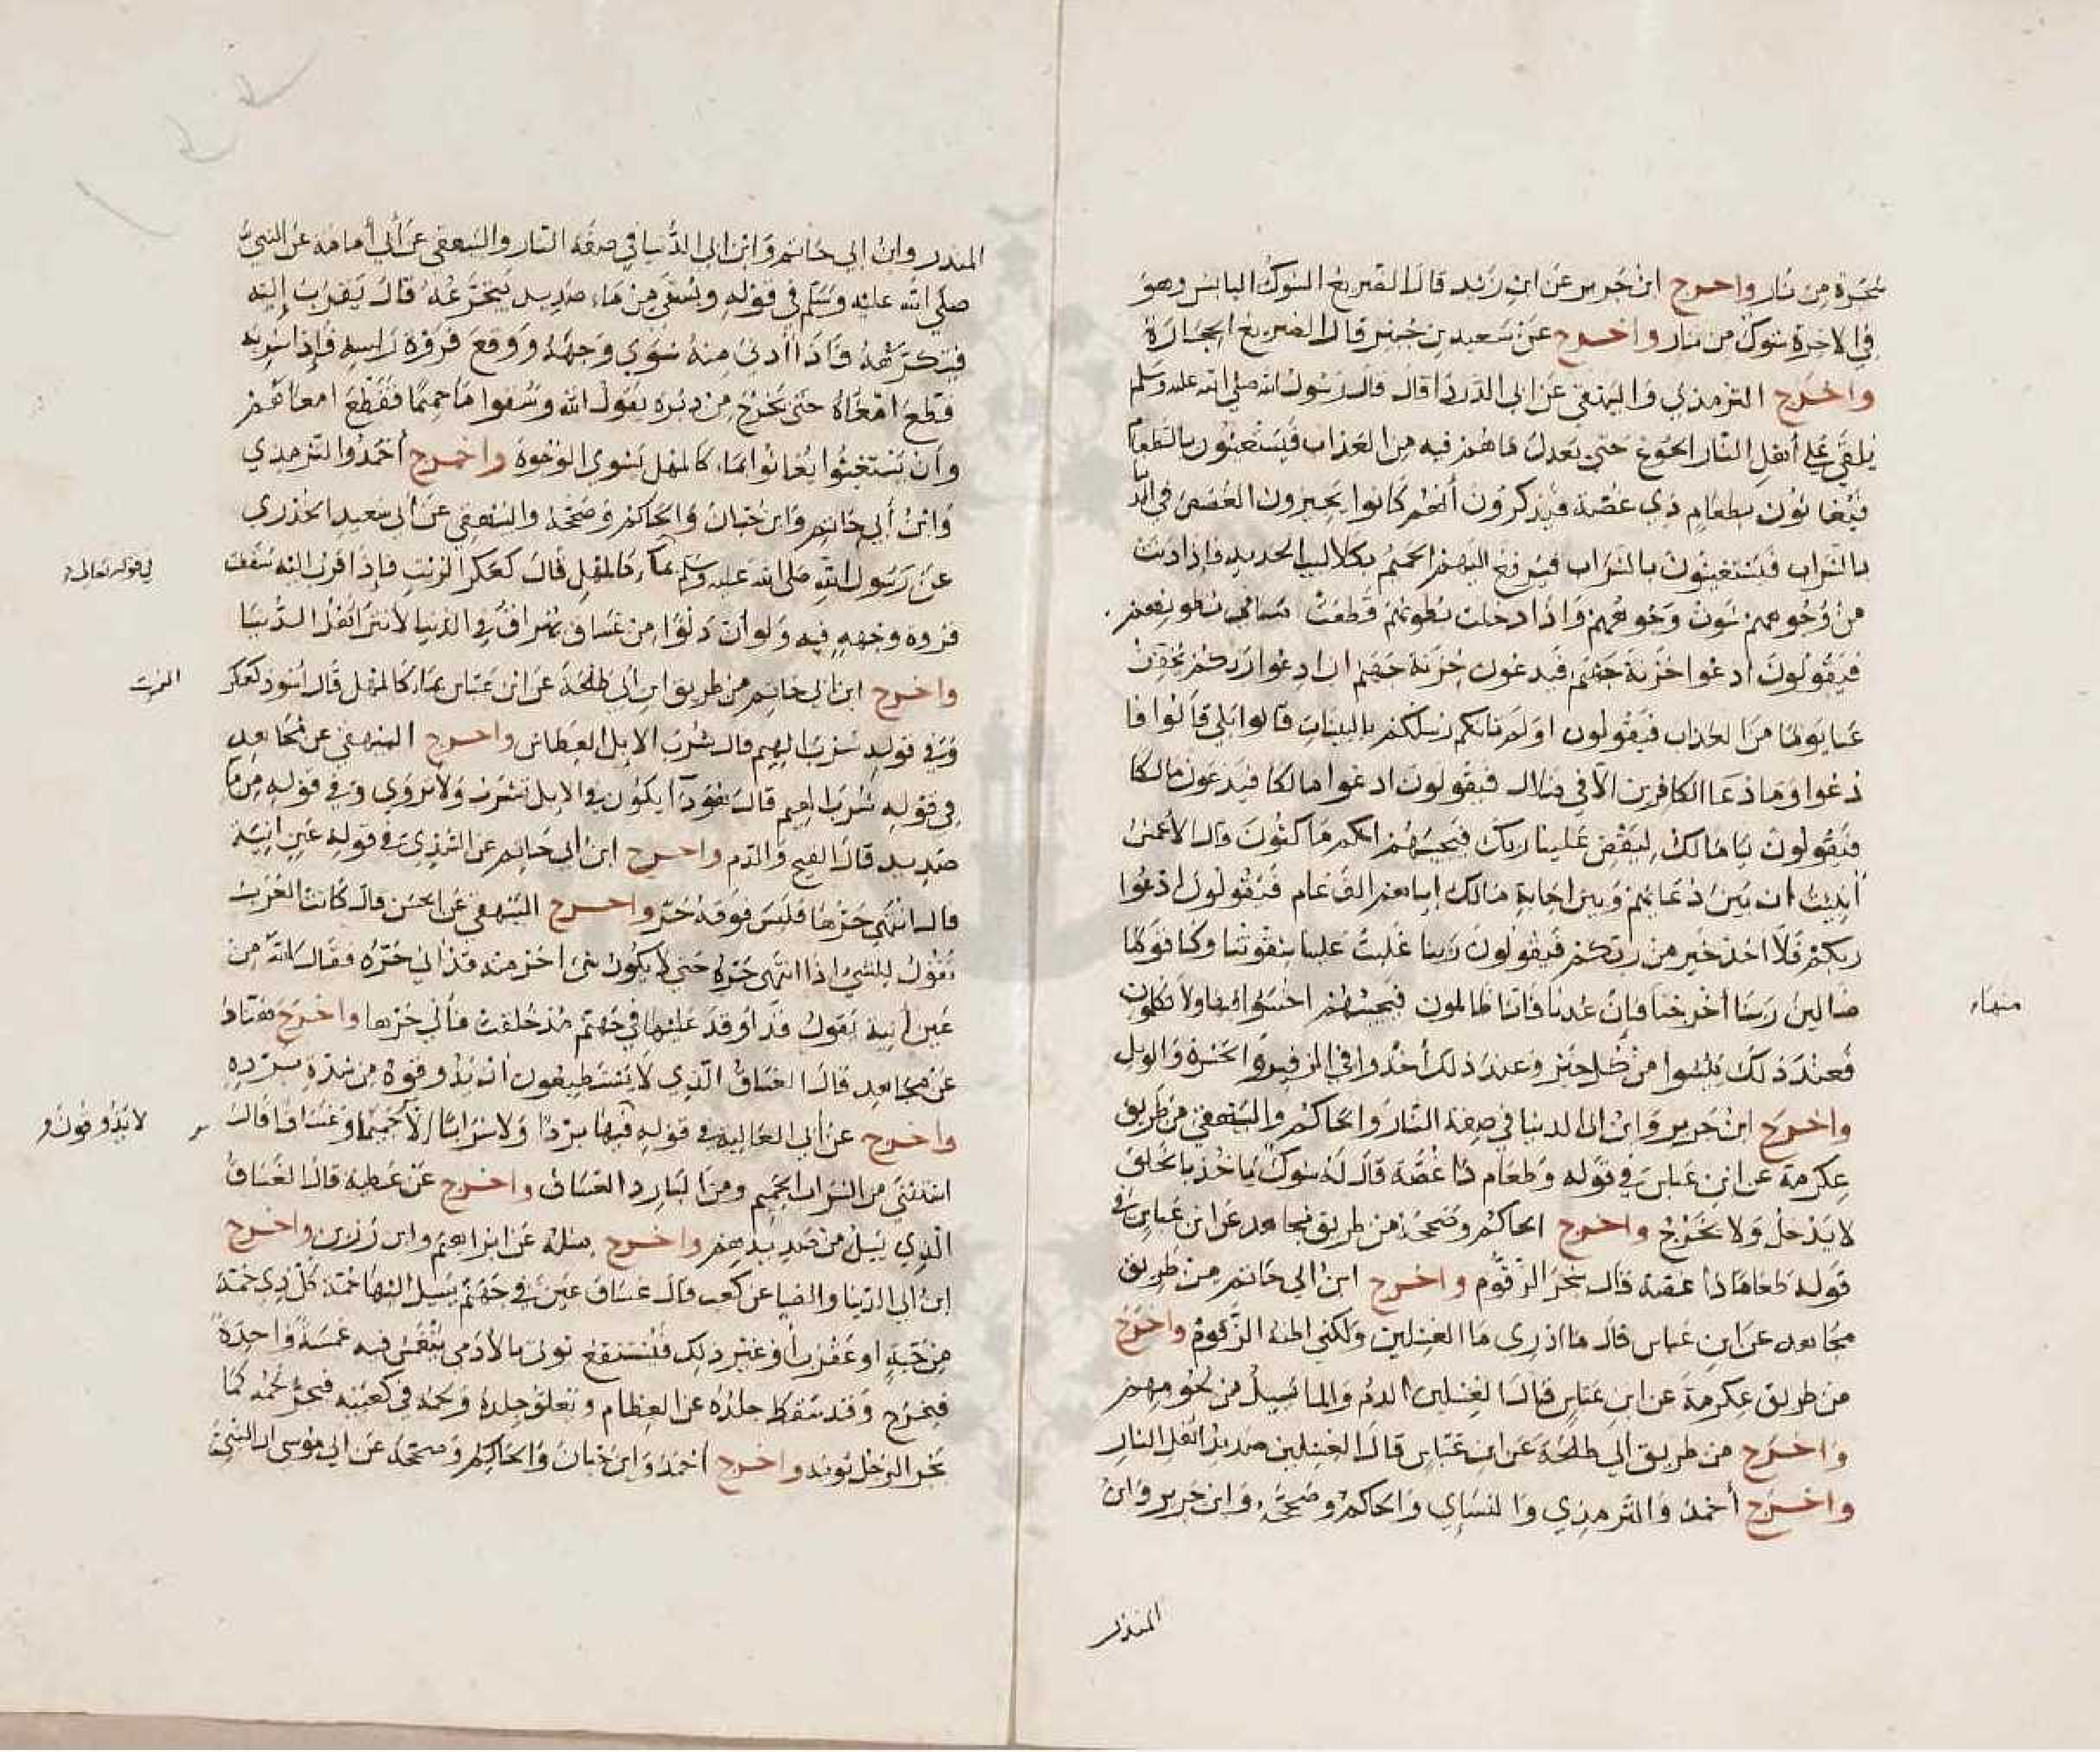 شجرة من نار واخرج ابن جرير عن ابن زيد قال الضريع الشوك اليابس وهو
في الاخرة شوك من نار واخرج عن سعيد بن جبير قال الضريع الحجارة
واخرج الترمذي والبيهقي عن ابي الدرداء قال قال رسول الله صلى الله عليه وسلم
يلقى على أهل النار الجوع حتى يعدل ما هم فيه من العذاب فيستغيثون بالطعام
فيغاثون بطعام ذي غصة فيذكرون أنهم كانوا يجيزون الغصص في الدنيا
بالشراب فيستغيثون بالشراب فيرفع اليهم الحميم بكلاليب الحديد فاذا دنت
من وجوههم شوت وجوههم واذا دخلت بطونهم قطعت ما في بطونهم
فيقولون ادعوا خزنة جهنم فيدعون خزنة جهنم ان ادعوا ربكم يخفف
عنا يوما من العذاب فيقولون اولم تاتكم رسلكم بالبينات قالوا بلى قالوا فا
دعوا وما دعا الكافرين الا في ضلال فيقولون ادعوا مالكا فيدعون مالكا
فيقولون يا مالك ليقض علينا ربك فيجيبهم انكم ماكثون قال الأعمش
أنبئت ان بين دعائهم وبين اجابة مالك اياهم الف عام فيقولون ادعوا
ربكم فلا احد خير من ربكم فيقولون ربنا غلبت علينا شقوتنا وكنا قوما
ضالين ربنا أخرجنا فان عدنا فانا ظالمون فيجيبهم اخسئوا فيها ولا تكلمون
منها
فعند ذلك يئسوا من كل خير وعند ذلك أخذوا في الزفير والحسرة والويل
واخرج ابن جرير وابن ابي الدنيا في صفة النار والحاكم والبيهقي من طريق
عكرمة عن ابن عباس في قوله وطعام ذا غصة قال له شوك ياخذ بالحلق
لا يدخل ولا يخرج واخرج الحاكم وصححه من طريق مجاهد عن ابن عباس في
قوله طعاما ذا غصة قال شجر الزقوم واخرج ابن ابي حاتم من طريق
مجاهد عن ابن عباس قال ما ادري ما الغسلين ولكني اظنه الزقوم واخرج
من طريق عكرمة عن ابن عباس قال الغسلين الدم والما يسيل من لحومهم
واخرج من طريق ابي طلحة عن ابن عباس قال الغسلين صديد أهل النار
واخرج أحمد والترمذي والنساي والحاكم وصححه وابن جرير وابن
المنذر
المنذر وابن ابي حاتم وابن ابي الدنيا في صفة النار والبيهقي عن أبي أمامة عن النبي
صلى الله عليه وسلم في قوله ويسقى من ماء صديد يتجرعه قال يقرب إليه
فيتكرهه فاذا أدنى منه شوى وجهه ووقع فروة راسه فإذا شربه
قطع امعاه حتى يخرج من دبره يقول الله وسقوا ما حميما فقطع امعاهم
وان يستغيثوا يغاثوا بماء كالمهل يشوي الوجوه واخرج أحمد والترمذي
وابن أبي حاتم وابن حبان والحاكم وصححه والبيهقي عن أبي سعيد الخدري
عن رسول الله صلى الله عليه وسلم بماء كالمهل قال كعكر الزيت فإذا قرب اليه سقطت
في قوله تعالى
فروة وجهه فيه ولو أن دلوا من غساق يهراق في الدنيا لأنتن أهل الدنيا
واخرج ابن ابي حاتم من طريق ابن ابي طلحة عن ابن عباس بماء كالمهل قال اسود كعكر
الزيت
وفي قوله شرب الهيم قال شرب الابل العطاش واخرج البيهقي عن مجاهد
في قوله شرب الهيم قال هو دآ يكون في الابل تشرب ولا تروى وفي قوله من ما
صديد قال القيح والدم واخرج ابن أبي حاتم عن السدي في قوله عين انية
قال انتهى حرها فليس فوقه حر واخرج البيهقي عن الحسن قال كانت العرب
تقول للشي اذا انتهى حره حتى لا يكون شي احر منه قد انى حره فقال الله من
عين انية يقول قد أوقد عليها في جهنم مذ خلقت فأنى حرها واخرج هناد
عن مجاهد قال الغساق الذي لا يستطيعون أن يذوقوه من شدة برده
واخرج عن أبي العالية في قوله فيها بردا ولا شرابا إلا حميما وغساقا قال
لا يذوقون
استثنى من الشراب الحميم ومن البارد الغساق واخرج عن عطية قال الغساق
الذي يسيل من صديدهم واخرج مثله عن ابراهيم وابن رزين واخرج
ابن ابي الدنيا والضيا عن كعب قال غساق عين في جهنم يسيل اليها حمة كل ذي حمة
من حية او عقرب أو غير ذلك فتستنقع يوتى بالآدمي يغمس فيه غمسة واحدة
فيخرج وقد سقط جلده عن العظام وتعلق جلده ولحمه في كعبيه فيجر لحمه كما
يجر الرجل ثوبه واخرج أحمد وابن حبان والحاكم وصححه عن ابي موسى ان النبي